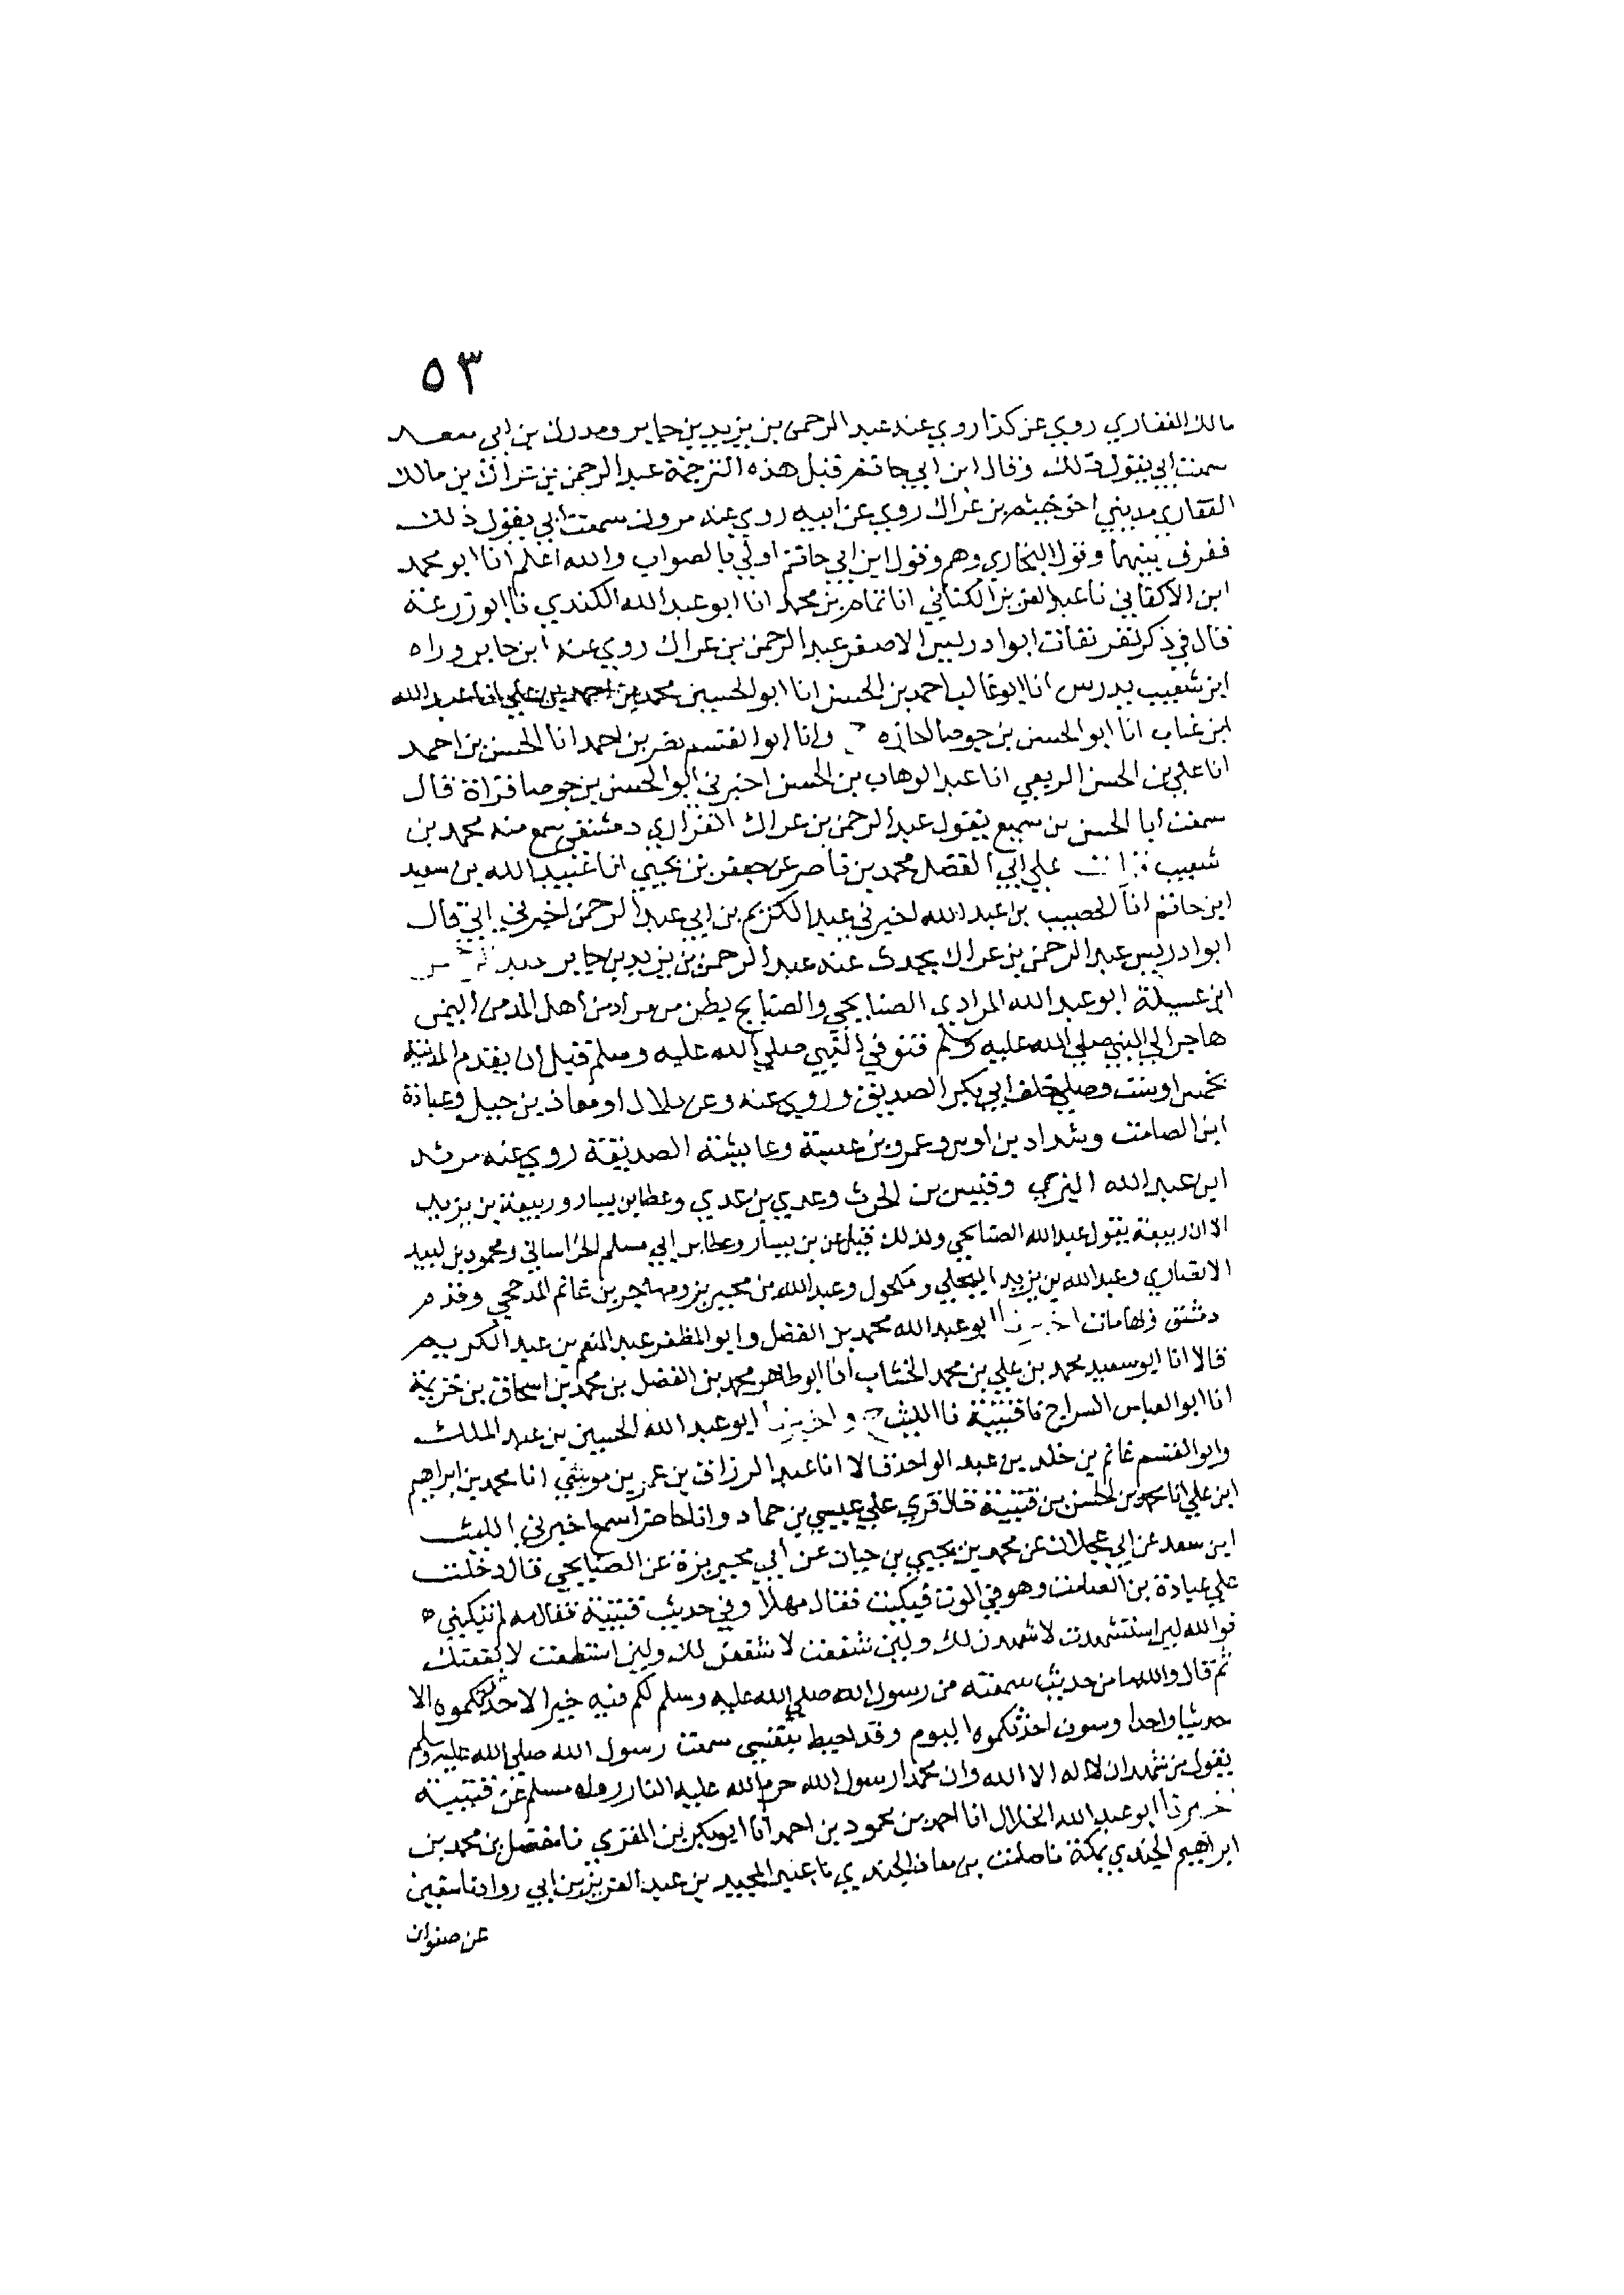 ٥٣
مالك الغفاري روي عن كذا روي عنه عبد الرحمن بن يزيد بن جابر ومدرك بن ابي سعد
سمعت ابي يقول ذلك وقال ابن ابي حاتم قبل هذه الترجمة عبد الرحمن بن عراك بن مالك
الغفاري مديني اخو خيثم بن عراك روي عن ابيه روي عنه مروان سمعت ابي يقول ذلك
ففرق بينهما وقول البخاري وهم وقول ابن ابي حاتم اولي بالصواب والله اعلم انا ابو محمد
ابن الاكفاني نا عبد العزيز الكتاني انا تمام بن محمد انا ابو عبد الله الكندي نا ابو زرعة
قال في ذكر نفر ثقات ابو ادريس الاصغر عبد الرحمن بن عراك روي عنه ابن جابر وراه
ابن شعيب يدرس انا ابو غالب احمد بن الحسن انا ابو الحسين محمد بن احمد بن علي انا عبد الله
ابن عتاب انا ابو الحسن بن جوصا اجازه ح وانا ابو القسم نصر بن احمد انا الحسن بن احمد
انا علي بن الحسن الربعي انا عبد الوهاب بن الحسن اخبرني ابو الحسن بن جوصا قراة قال
سمعت ابا الحسن بن سميع يقول عبد الرحمن بن عراك الفزاري دمشقي سمع منه محمد بن
شعيب قرات علي ابي الفضل محمد بن ناصر عن جعفر بن يحيي انا عبيد الله بن سعيد
ابن حاتم انا الخصيب بن عبد الله اخبرني عبد الكريم بن ابي عبد الرحمن اخبرني ابي قال
ابو ادريس عبد الرحمن بن عراك يحدث عنه عبد الرحمن بن يزيد بن جابر
ابن عسيلة ابو عبد الله المرادي الصنابحي والصنابح بطن من مراد من اهل المدمن اليمن
هاجر الي النبي صلي الله عليه وسلم فتوفي النبي صلي الله عليه وسلم قبل ان يقدم المدينة
بخمس او ست وصلي خلف ابي بكر الصديق وروي عنه وعن بلال او معاذ بن جبل وعبادة
ابن الصامت وشداد بن اوس وعمرو بن عبسة وعايشة الصديقة روي عنه مرثد
ابن عبد الله اليزني وقيس بن الحرث وعدي بن عدي وعطا بن يسار وربيعة بن يزيد
الا ان ربيعة يقول عبد الله الصنابحي وكذلك قيل عن بن يسار وعطا بن ابي مسلم الخراساني ومحمود بن لبيد
الانصاري وعبد الله بن يزيد البجلي ومكحول وعبد الله بن محيريز ومهاجر بن غانم المدحجي وقدم
دمشق وبها مات اخبرنا ابو عبد الله محمد بن الفضل وابو المظفر عبد المنعم بن عبد الكريم
قالا انا ابو سعيد محمد بن علي بن محمد الخشاب انا ابو طاهر محمد بن الفضل بن محمد بن اسحاق بن خزيمة
انا ابو العباس السراج نا قتيبة نا الليث ح واخبرنا ابو عبد الله الحسين بن عبد الملك
وابو القسم غانم بن خلد بن عبد الواحد قالا انا عبد الرزاق بن عمر بن موسي انا محمد بن ابراهيم
ابن علي انا محمد بن الحسن بن قتيبة قال قري علي عيسي بن حماد وانا حاضر اسمع اخبرني الليث
ابن سعد عن ابي عجلان عن محمد بن يحيي بن حيان عن ابي محيريزة عن الصنابحي قال دخلت
علي عبادة بن الصامت وهو في الموت فبكيت فقال مهلا وفي حديث قتيبة فقال مه لم تبكيني ه
فوالله لين استشهدت لاشهدن لك ولين شفعت لاشفعن لك ولين استطعت لانفعتك
ثم قال والله ما من حديث سمعته من رسول الله صلي الله عليه وسلم لكم فيه خيرا لاحدثتكموه الا
حديثا واحدا وسوف احدثكموه اليوم وقد احيط بنفسي سمعت رسول الله صلي الله عليه وسلم
يقول من شهد ان لا اله الا الله وان محمدا رسول الله حرم الله عليه النار رواه مسلم عن قتيبة
اخبرنا ابو عبد الله الخلال انا احمد بن محمود بن احمد انا ابو بكر بن المقري نا مفضل بن محمد بن
ابراهيم الجندي بمكة نا صامت بن معاذ الجندي نا عبد المجيد بن عبد العزيز بن ابي رواد نا سفين
عن صفوان